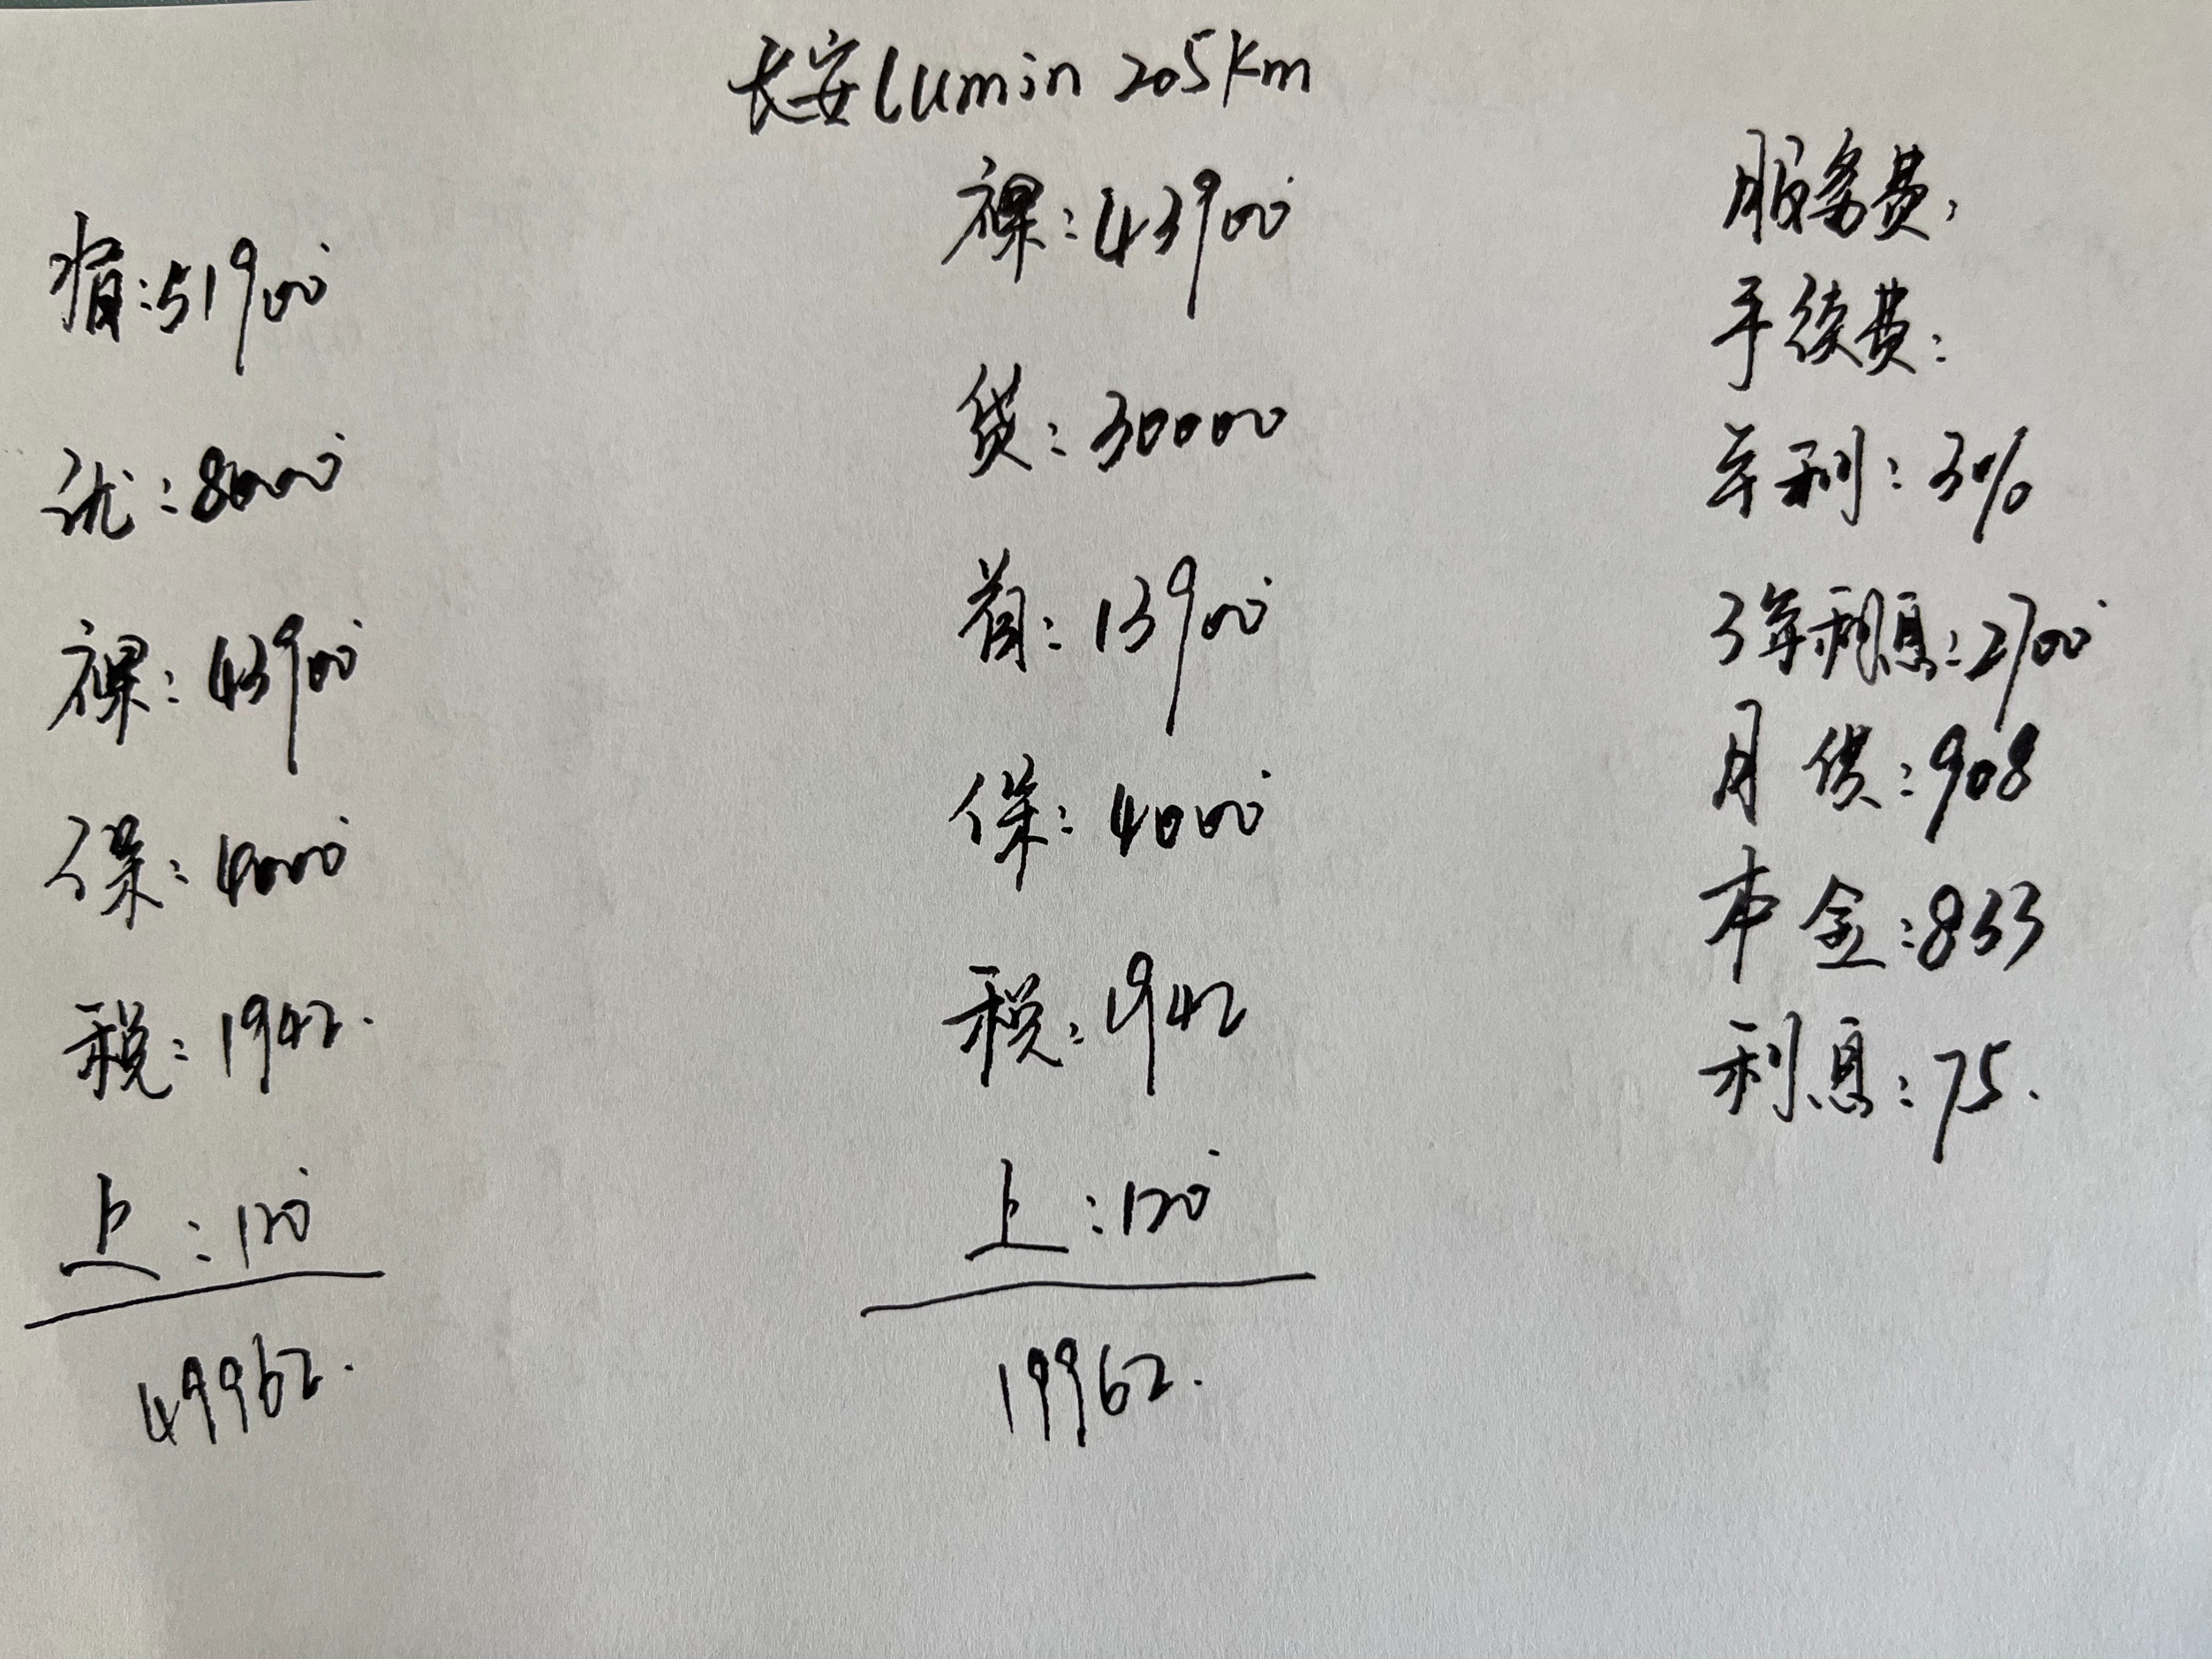 长安lumin 205km
指:51900
优:8000
裸:43900
保:4000
税:1942.
上:120
49962.
裸:43900
贷:30000
首:13900
保:4000
税:1942
上:120
19962.
服务费:
手续费:
年利:3%
3年利息:2700
月供:908
本金:833
利息:75.